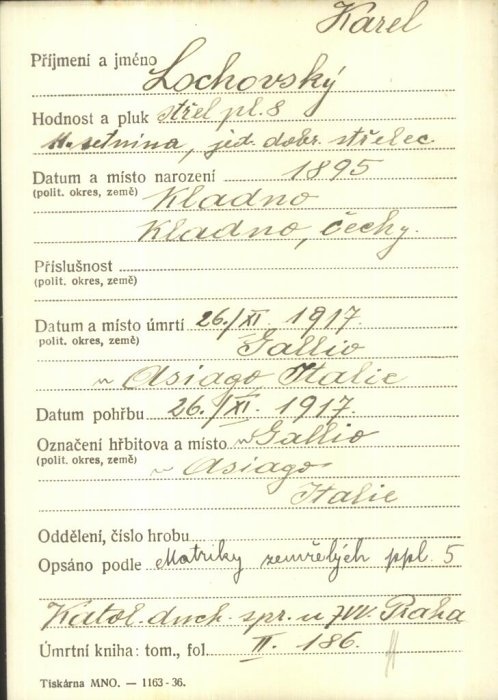 Karel
Příjmení a jméno Lochovský
Hodnost a pluk střel. pl. 8
11. setnina, jed. dobr. střelec.
Datum a místo narození 1895
(polit. okres, země) Kladno
Kladno, Čechy.
Příslušnost
(polit. okres, země)
Datum a místo úmrtí 26./XI. 1917.
(polit. okres, země) Gallio
u Asiago, Italie
Datum pohřbu 26./XI. 1917.
Označení hřbitova a místo v Gallio
(polit. okres, země) u Asiago
Italie
Oddělení, číslo hrobu
Opsáno podle Matriky zemřelých ppl. 5
Katol. duch. spr. u ZVV. Praha
Úmrtní kniha: tom., fol. II. 186.
Tiskárna MNO. — 1163-36.